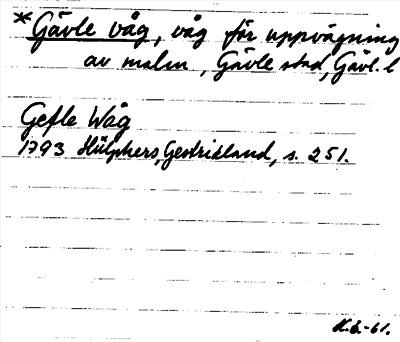 *Gävle våg, våg för uppvägning
av malm, Gävle stad, Gävl. l
Gefle Wåg
1793 Hülphers, Gestrikland, s. 251.
K.E.-61.